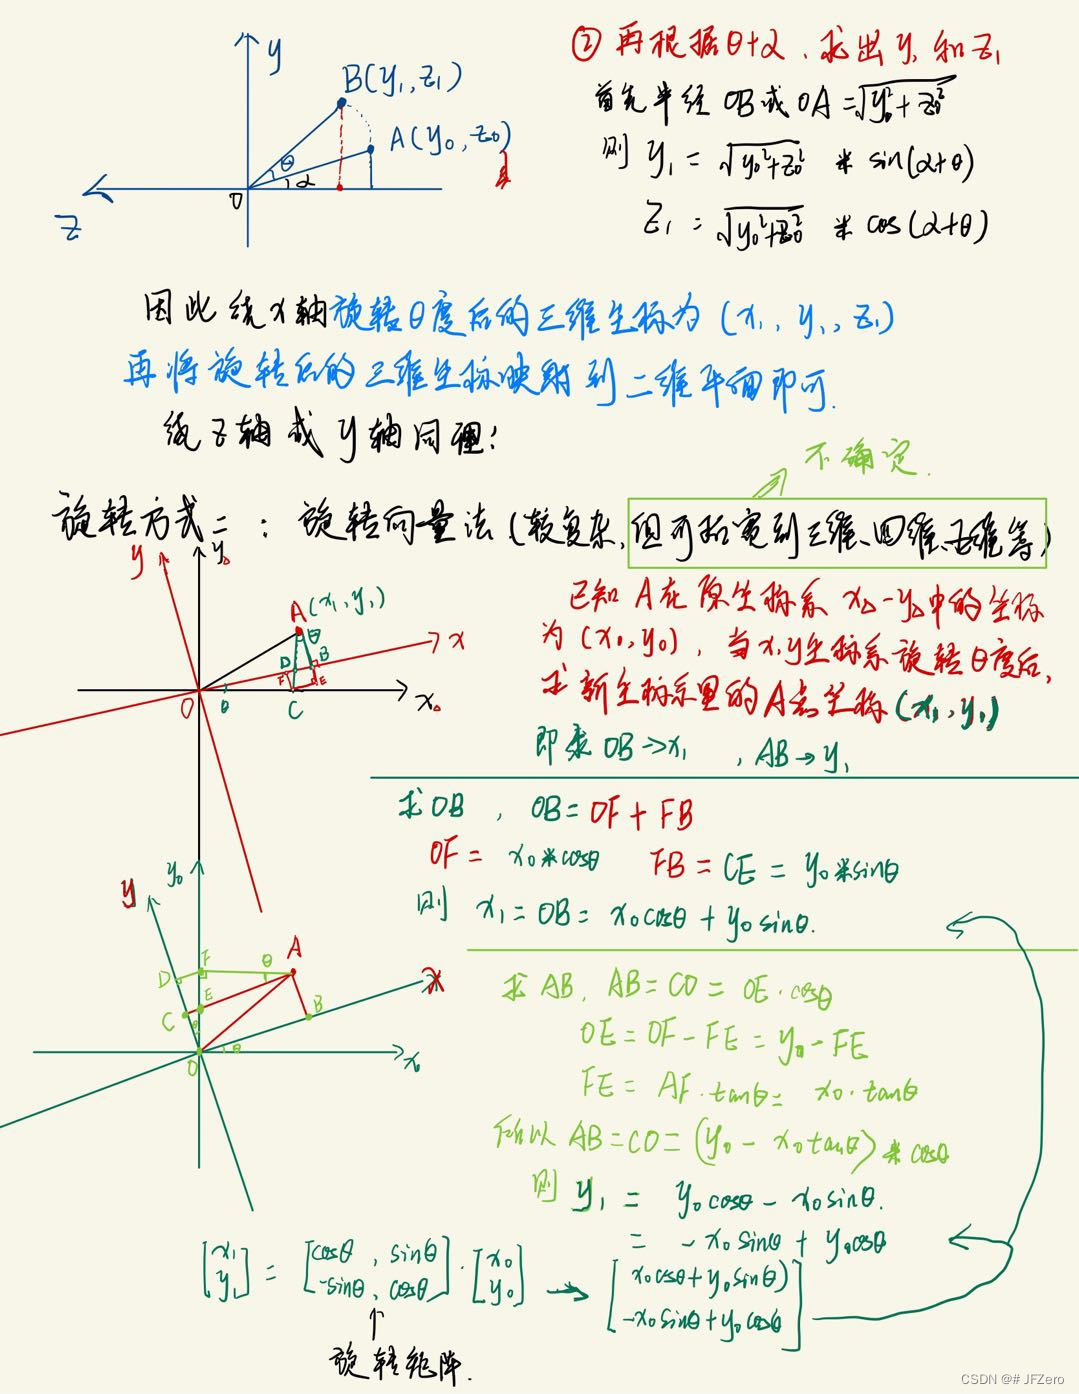 y
B(y₁,z₁)
A(y₀,z₀)
θ
α
O
Z
② 再根据θ+α、求出y₁和z₁
首先半径OB或OA=√(y₀²+z₀²)
则 y₁ = √(y₀²+z₀²) * sin(α+θ)
z₁ = √(y₀²+z₀²) * cos(α+θ)
因此绕x轴旋转θ度后的三维坐标为(x₁, y₁, z₁)
再将旋转后的三维坐标映射到二维平面即可.
绕z轴或y轴同理!
不确定.
旋转方式二: 旋转向量法(较复杂,但可拓宽到三维、四维、五维等)
y
y₀
A(x₁,y₁)
θ
D
B
F
E
x
O
θ
C
x₀
已知A在原坐标系x₀-y₀中的坐标
为(x₀,y₀), 当x,y坐标系旋转θ度后,
求新坐标系里的A点坐标(x₁,y₁)
即求OB→x₁ ,AB→y₁
求OB , OB=OF+FB
OF= x₀*cosθ FB=CE=y₀*sinθ
则 x₁=OB=x₀cosθ+y₀sinθ.
y₀
y
F
θ
A
D
E
C
θ
B
x
O
θ
x₀
求AB, AB=CO=OE·cosθ
OE=OF-FE=y₀-FE
FE=AF·tanθ=x₀·tanθ
所以AB=CO=(y₀-x₀tanθ)*cosθ
则 y₁ = y₀cosθ-x₀sinθ.
= -x₀sinθ+y₀cosθ
[x₁ = [cosθ, sinθ] · [x₀ → [x₀cosθ+y₀sinθ)
y₁] [-sinθ, cosθ] y₀] -x₀sinθ+y₀cosθ]
↑
旋转矩阵.
CSDN @# JFZero